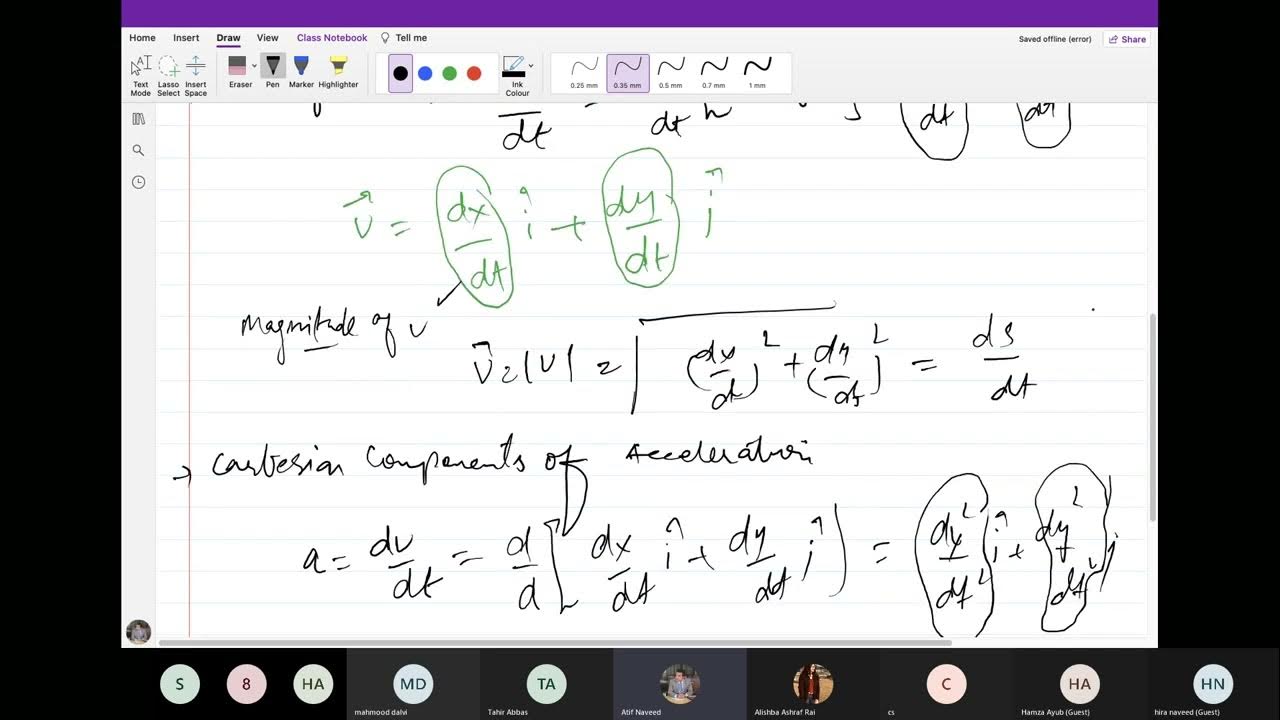 Home Insert Draw View Class Notebook Tell me
Saved offline (error) Share
Text Mode
Lasso Select
Insert Space
Eraser
Pen
Marker
Highlighter
Ink Colour
0.25 mm
0.35 mm
0.5 mm
0.7 mm
1 mm
dt dt dt
v⃗ = dx/dt î + dy/dt ĵ
Magnitude of v
v⃗ = |v| = √ (dx/dt)² + (dy/dt)² = ds/dt
→ Cartesian Components of Acceleration
a = dv/dt = d/d [ dx/dt î + dy/dt ĵ ] = dx²/dt² î + dy²/dt² j
S 8 HA MD TA C HA HN
mahmood dalvi
Tahir Abbas
Atif Naveed
Alishba Ashraf Rai
cs
Hamza Ayub (Guest)
hira naveed (Guest)